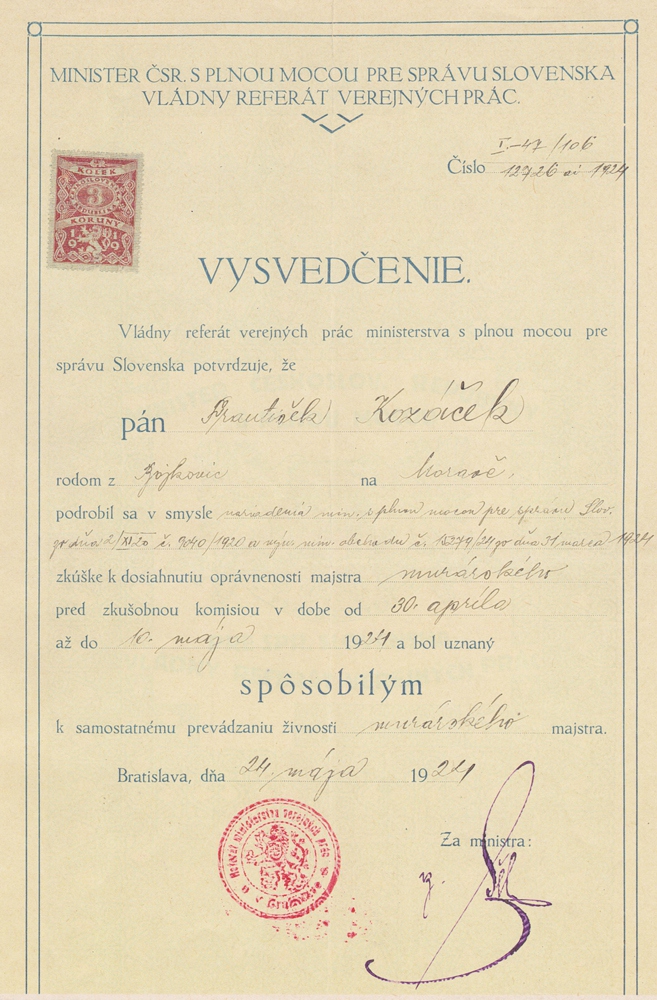 MINISTER ČSR. S PLNOU MOCOU PRE SPRÁVU SLOVENSKA
VLÁDNY REFERÁT VEREJNÝCH PRÁC.
I.-47/106
Číslo 12726 ai 1924
KOLEK
3
KORUNY
1919
VYSVEDČENIE.
Vládny referát verejných prác ministerstva s plnou mocou pre
správu Slovenska potvrdzuje, že
pán František Kozáček
rodom z Bojkovic na Moravě,
podrobil sa v smysle nariadenia min. s plnou mocou pre správu Slov.
zo dňa 2/XI-20 č. 9040/1920 a výn. min. obchodu č. 15379/24 zo dňa 31 marca 1924
zkúške k dosiahnutiu oprávnenosti majstra murárského
pred zkušobnou komisiou v dobe od 30. apríla
až do 10. mája 1924 a bol uznaný
spôsobilým
k samostatnému prevádzaniu živnosti murárského majstra.
Bratislava, dňa 24. mája 1924
Za ministra: